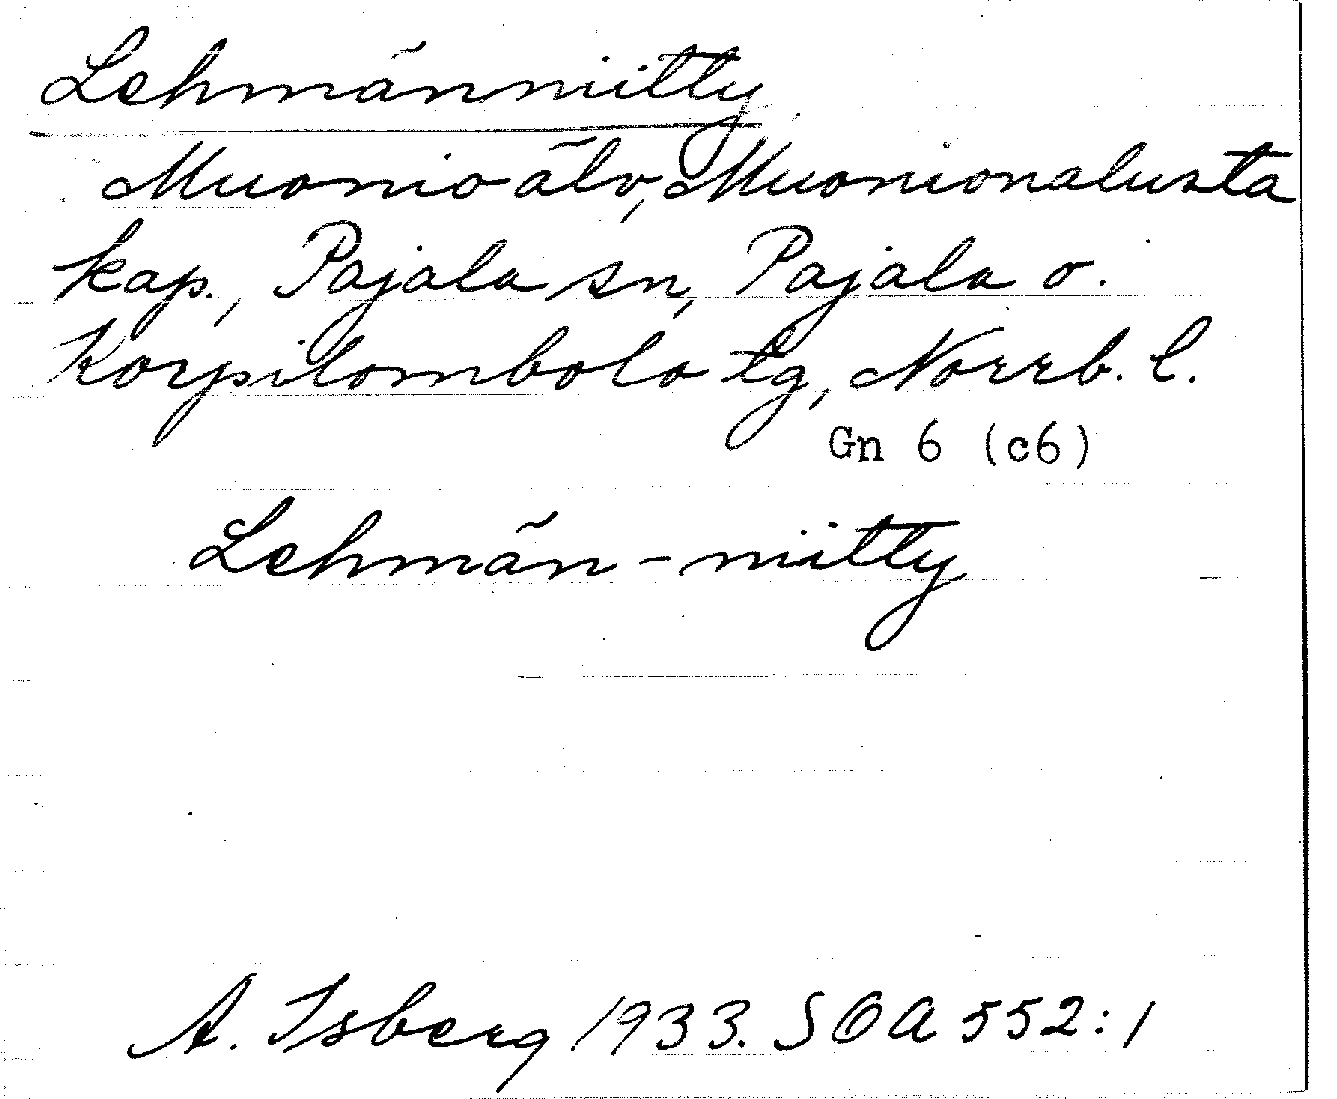 Lehmänniitty
Muonio älv, Muonionalusta
kap., Pajala sn, Pajala o.
Korpilombolo tg, Norrb. l.
Gn 6 (c6)
Lehmän-niitty
A. Isberg 1933. SOA 552:1